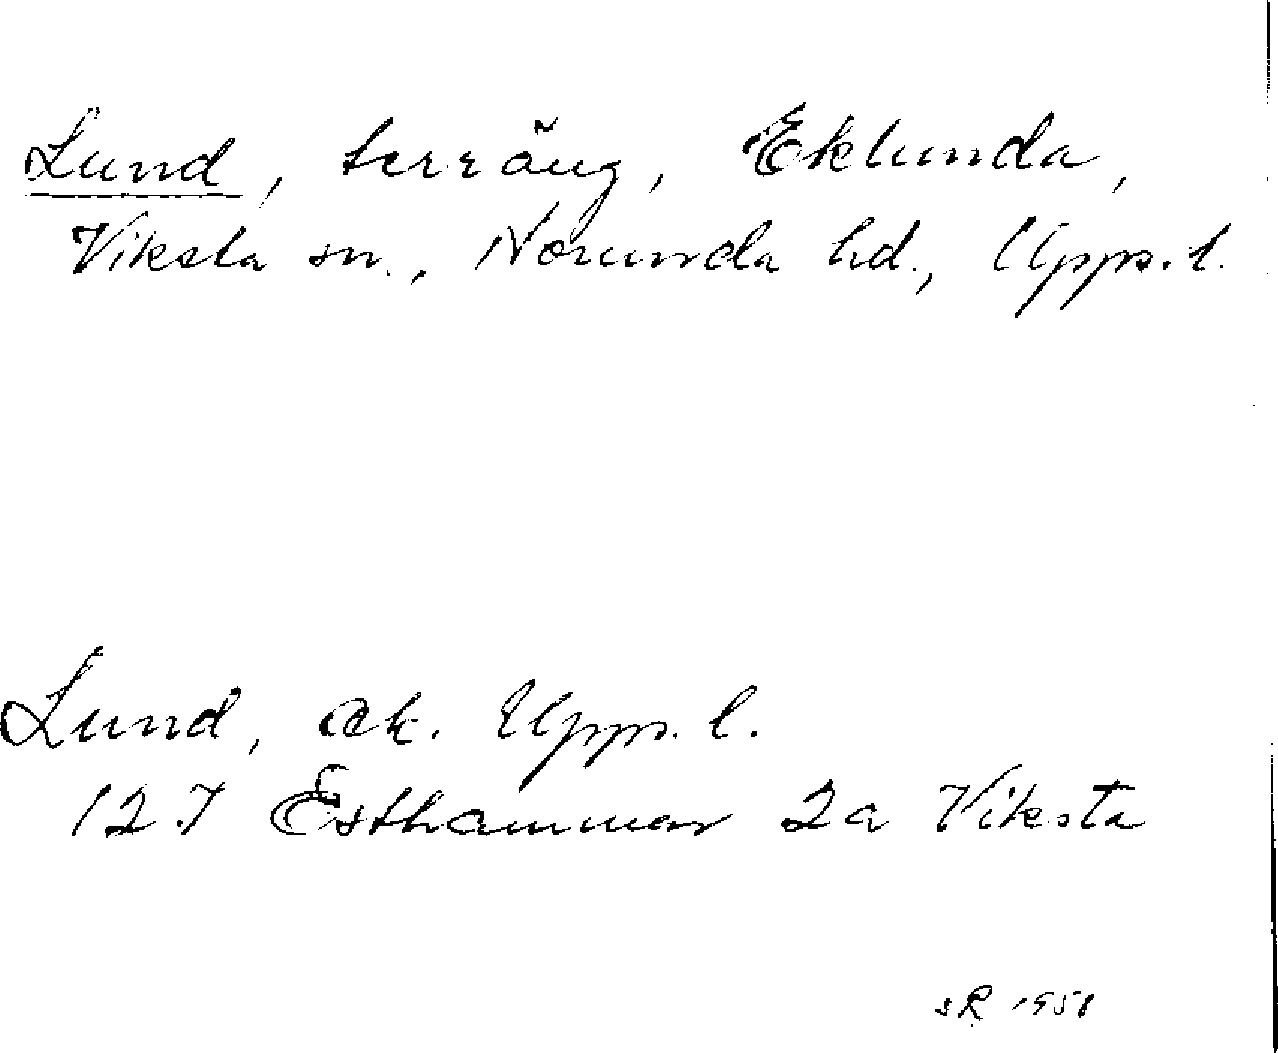 Lund, terräng, Eklunda,
Viksta sn., Norunda hd., Upps. l.
Lund, ek. Upps. l.
12 I Östhammar 2a Viksta
SR 1958